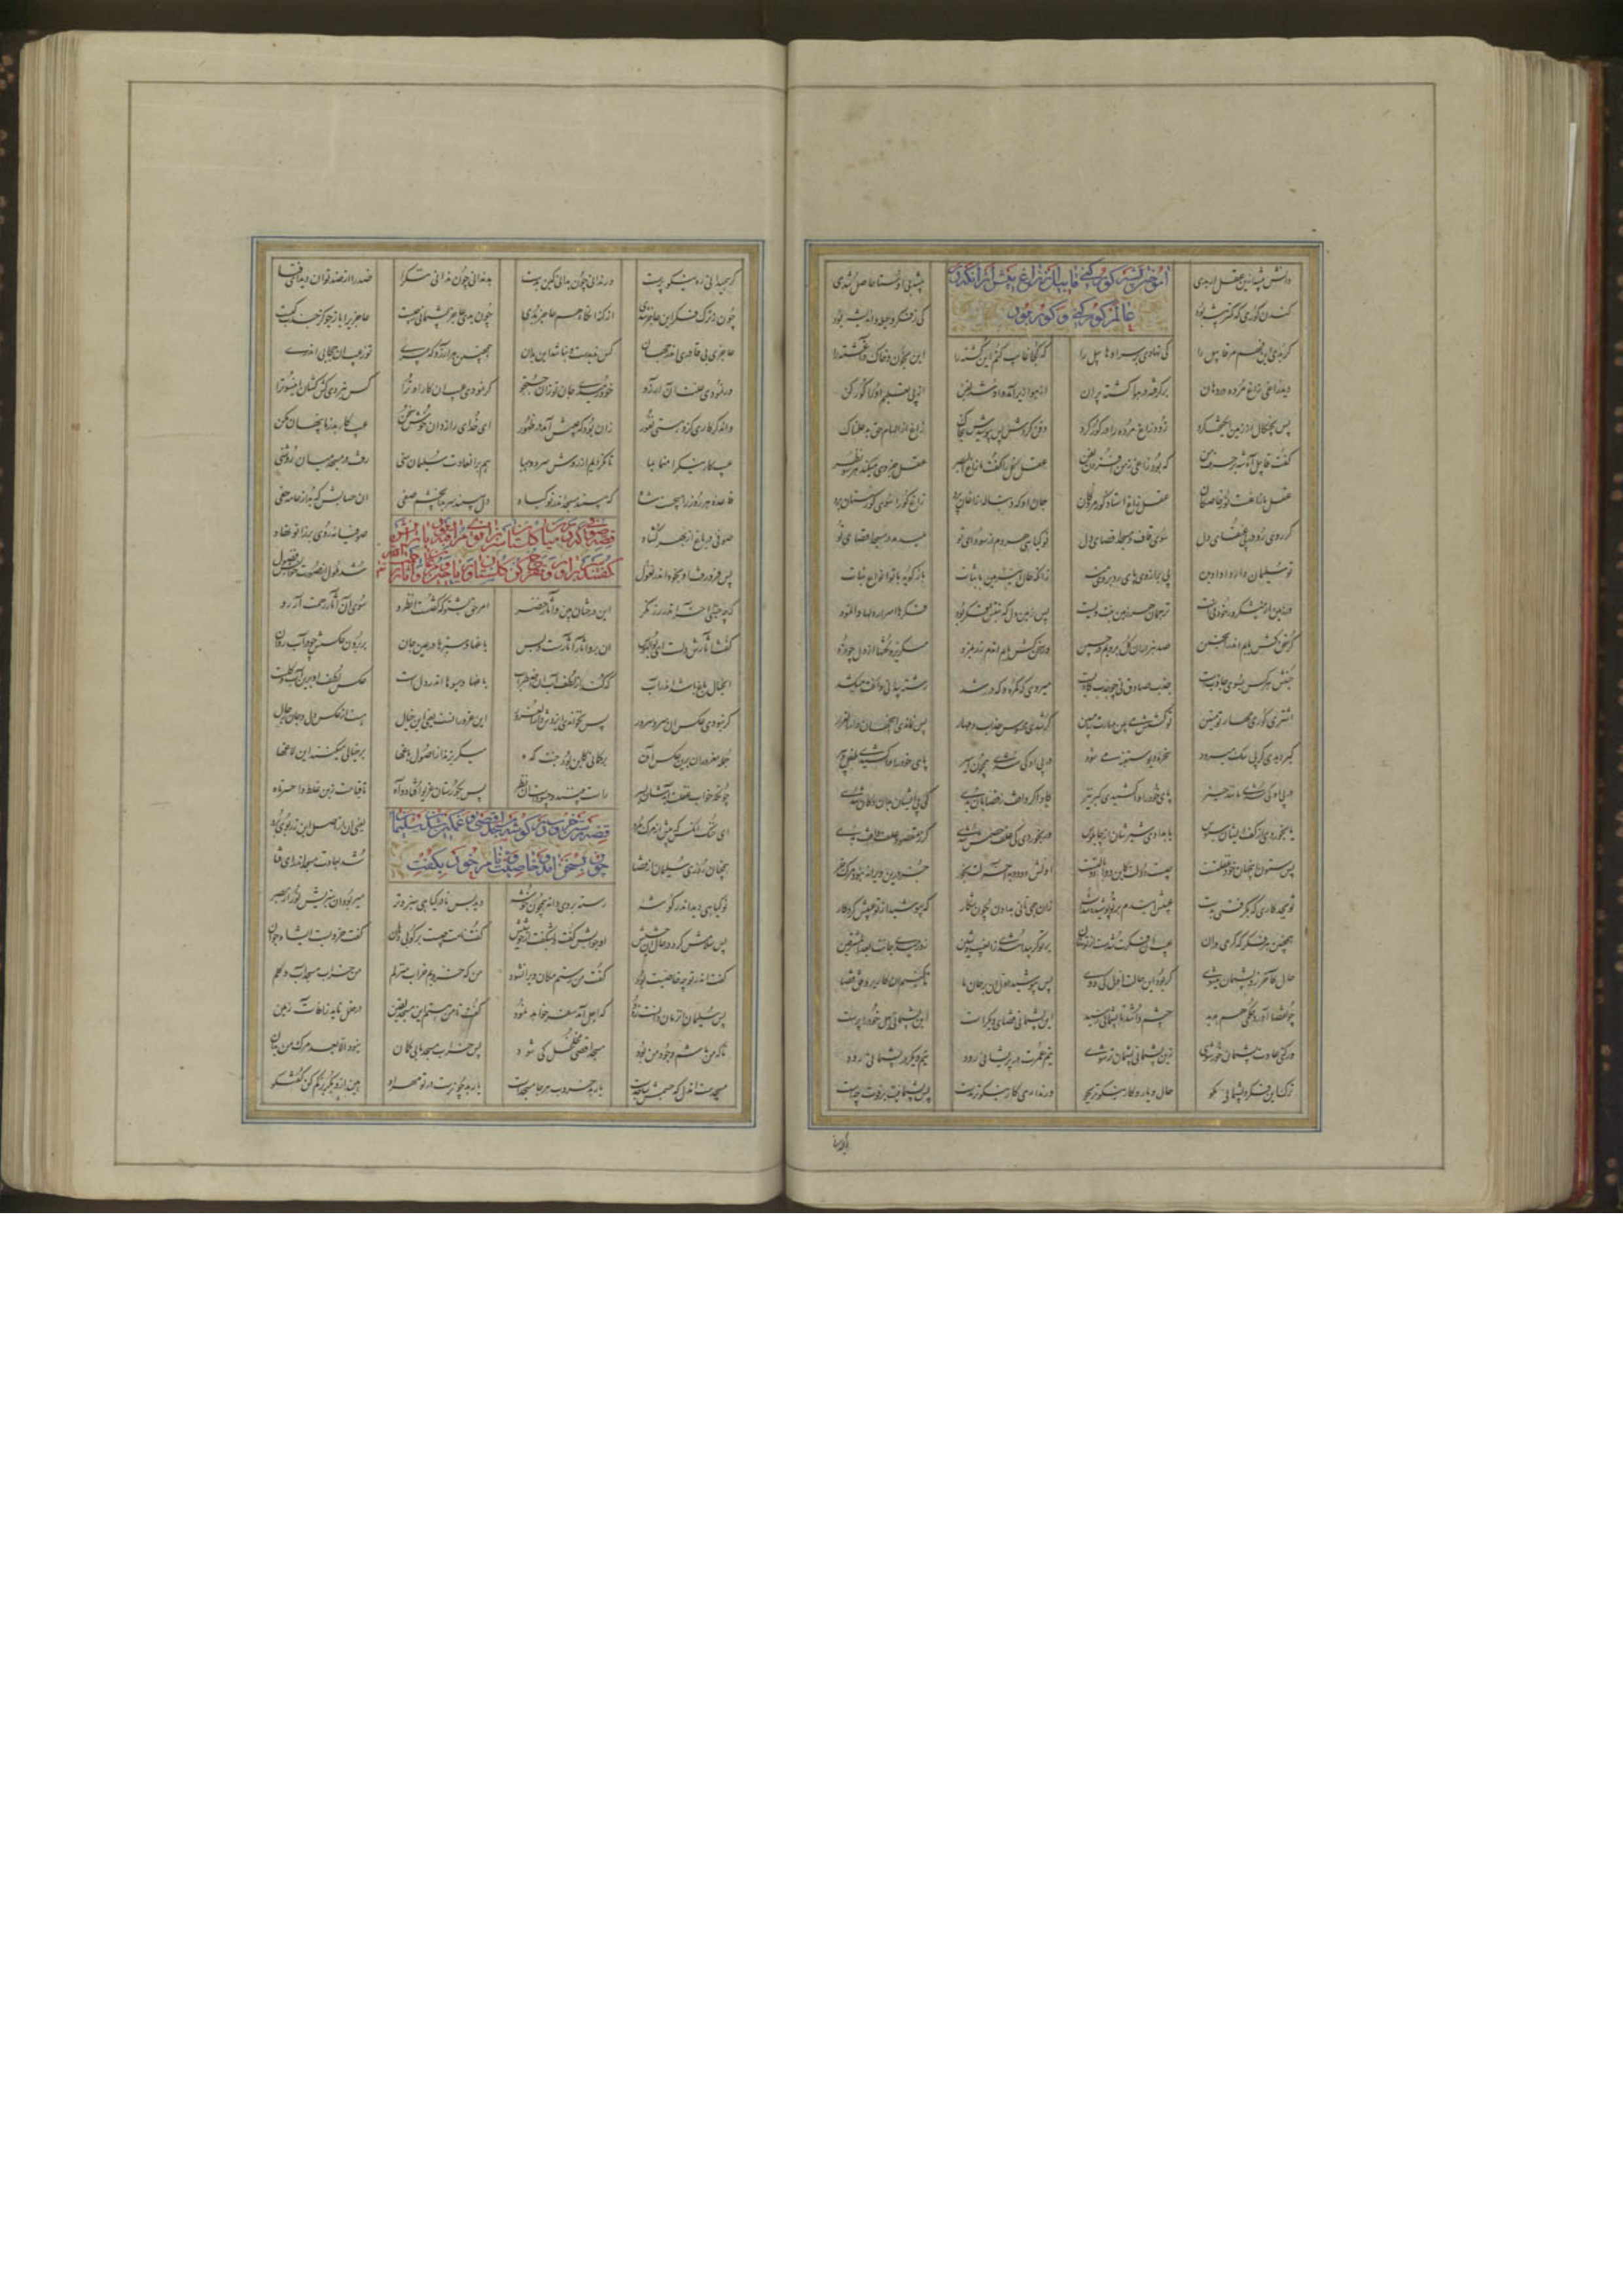 دانش پیشه ازین عقل ار بدی
پیشه بی اوستا حاصل شدی
آموختن پیشه گورکنی قابیل از زاغ پیش از آنکه در
عالم گورکنی و گور بود
کندن گوری که کمتر پیشه بود
کی ز فکر و حیله و اندیشه بود
گر بدی این فهم مر قابیل را کی نهادی بر سر او هابیل را که کجا غایب کنم این کشته را این بخون و خاک در آغشته را
دید زاغی زاغ مرده در دهان برگرفته در هوا گشته پران از هوا زیر آمد و او شد بفن از پی تعلیم او را گورکن
پس بچنگال از زمین انگیخت گرد زود زاغ مرده را در گور کرد دفن کردش پس بپوشیدش بخاک زاغ از الهام حق بد علمناک
گفت قابیل آه شه بر عقل من که بود زاغی ز من افزون بفن عقل کل را گفت ما زاغ البصر عقل جزوی میکند هر سو نظر
عقل ما زاغست نور خاصگان عقل زاغ استاد گور مردگان جان که او دنباله زاغان پرد زاغ او را سوی گورستان برد
گر روی رو در پی عنقای دل سوی قاف و مسجد اقصای دل نو گیاهی هر دم از سودای تو میدمد در مسجد اقصای تو
تو سلیمان وار داد او پی بر از وی پای رد بر وی منه زانکه حال این زمین با ثبات باز گوید با تو انواع نبات
در زمین گر نیشکر ور خود نیست ترجمان هر زمین نبت ویست پس زمین دل که نبتش فکر بود فکرها اسرار دل را وا نمود
گر سخن کش یابم اندر انجمن صد هزاران گل برویم چون چمن ور سخن کش یابم آن دم زن بمزد میگریزد نکتها از دل چو دزد
جنبش هر کس بسوی جاذبست جذب صادق نی چو جذب کاذبست میروی گه گمره و گه در رشد رشته پیدا نی و آنکت میکشد
اشتر کوری مهار تو رهین تو کشش می بین مهارت را مبین گر شدی محسوس جذاب و مهار پس نماندی این جهان دار الغرار
گبر دیدی کو پی سگ میرود سخره دیو ستنبه می شود در پی او کی شدی پای خود را وا کشیدی
در پی او کی شدی مانند حیز پای خود را وا کشیدی گبر نیز گاو اگر واقف ز قصابان بدی کی پی ایشان بدان دکان شدی
یا بخوردی از کف ایشان سبوس یا بدادی شیرشان از چاپلوس ور بخوردی کی علف هضمش شدی گر ز مقصود علف واقف بدی
پس ستون این جهان خود غفلتست چیست دولت کاین دوادو با لتست اولش دو دو بآخر لت بخور جز درین ویرانه نبود مرگ خر
تو بجد کاری که بگرفتی بدست عیبش این دم بر تو پوشیده شدست زان همی تانی بدادن تن بکار که بپوشید از تو عیبش کردگار
همچنین هر فکر که گرمی در آن عیب آن فکرت شدست از تو نهان بر تو گر پیدا شدی زو عیب و شین زو رمیدی جانت بعد المشرقین
حال کآخر زو پشیمان میشوی گر بود این حالت اول کی دوی پس بپوشید اول آن بر جان ما تا کنیم آن کار بر وفق قضا
چون قضا آورد حکم خود پدید چشم وا شد تا پشیمانی رسید این پشیمانی قضای دیگرست این پشیمانی بهل حق را پرست
ور کنی عادت پشیمان خور شوی زین پشیمانی پشیمان تر شوی نیم عمرت در پریشانی رود نیم دیگر در پشیمانی رود
ترک این فکر و پشیمانی بگو حال و یار و کار نیکوتر بجو ور نداری کار نیکوتر بدست پس پشیمانیت بر فوت چه است
گر همی دانی ره نیکو پرست ور ندانی چون بدانی کین بدست بد ندانی چون ندانی نیک را ضد را از ضد توان دید ای فتی
چون ز ترک فکر این عاجز شدی از گنه آنگاه هم عاجز بدی چون بدی عاجز پشیمانی ز چیست عاجزی را باز جو کز جذب کیست
عاجزی بی قادری اندر جهان کس ندیدست و نباشد این بدان همچنین هر آرزو که می بری تو ز عیب آن حجابی اندری
ور نمودی علت آن آرزو خود رمیدی جان تو زان جستجو گر نمودی عیب آن کار او ترا کس نبردی کش کشان آن سو ترا
وان دگر کاری کز آن هستی نفور زان بود که عیبش آمد در ظهور ای خدای رازدان خوش سخن عیب کار بد ز ما پنهان مکن
عیب کار نیک را منما بما تا نگردیم از روش سرد و هبا هم بر آن عادت سلیمان سنی رفت در مسجد میان روشنی
قاعده هر روز را میجست شاه که ببیند مسجد اندر نو گیاه دل ببیند سر بدان چشم صفی آن حشایش که شد از عامه خفی
قصه صوفی که در میان گلستان سر بزانوی مراقبت بود یارانش
گفتند سر برآور و تفرج کن گلستان و ریاحین و مرغان و آثار
صوفیی در باغ از بهر گشاد صوفیانه روی بر زانو نهاد
پس فرو رفت او بخود اندر نغول شد ملول از صورت خوابش فضول
که چه خسپی آخر اندر رز نگر این درختان بین و آثار خضر امر حق بشنو که گفتست انظروا سوی این آثار رحمت آر رو
گفت آثارش دلست ای بوالهوس آن برون آثار آثارست و بس باغها و سبزها در عین جان بر برون عکسش چو در آب روان
آن خیال باغ باشد اندر آب که کند از لطف آب آن اضطراب باغها و میوها اندر دلست عکس لطف او برین آب و گلست
گر نبودی عکس آن سرو سرور پس نخواندی ایزدش دار الغرور این غرور آنست یعنی این خیال هست از عکس دل و جان رجال
جمله مغروران برین عکس آمده بر گمانی کاین بود جنت کده میگریزند از اصول باغها بر خیالی میکنند آن لاغها
چونکه خواب غفلت آیدشان بسر راست بینند و چه سودست آن نظر پس بگورستان غریو افتاد و آه تا قیامت زین غلط وا حسرتاه
ای خنک آنکس که پیش از مرگ مرد یعنی او از اصل این رز بوی برد
قصه رستن خروب در گوشه مسجد اقصی و غمگین شدن سلیمان
چون بسخن آمد و خاصیت و نام خود بگفت
همچنان روزی سلیمان از قضا شد بعادت مسجد اندر ای فتا
نو گیاهی دید اندر گوشه رسته بر وی دانه همچون خوشه دید بس نادر گیاهی سبز و تر میربود آن سبزیش نور از بصر
پس سلامش کرد در حال آن حشیش او جوابش گفت و بشگفت از خوشیش گفت نامت چیست برگو بی دهان گفت خروبست ای شاه جهان
گفت اندر تو چه خاصیت بود گفت من رستم مکان ویران شود من که خروبم خراب منزلم من خراب مسجد آب و گلم
پس سلیمان آن زمان دانست زود که اجل آمد سفر خواهد نمود گفت تا من هستم این مسجد یقین در خلل ناید ز آفات زمین
تا که من باشم وجود من بود مسجد اقصی مخلخل کی شود پس خراب مسجد ما بی گمان نبود الا بعد مرگ من بدان
مسجدست آن دل که جسمش ساجدست یار بد خروب هر جا مسجدست یار بد چون رست در تو مهر او هین ازو بگریز و کم کن گفتگو